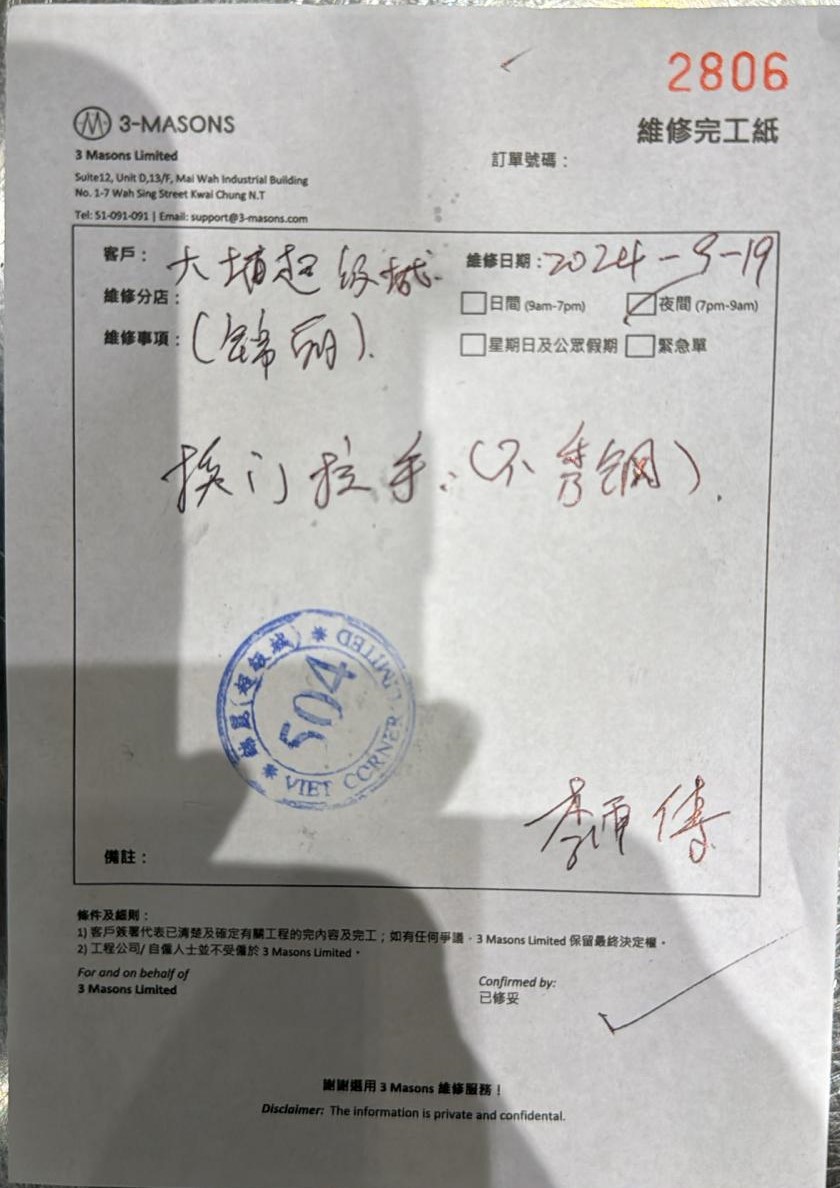 2806
3-MASONS
維修完工紙
3 Masons Limited
訂單號碼：
Suite12, Unit D,13/F, Mai Wah Industrial Building
No. 1-7 Wah Sing Street Kwai Chung N.T
Tel: 51-091-091 | Email: support@3-masons.com
客戶： 大埔超级城
維修日期：2024-9-19
維修分店：
日間 (9am-7pm) 夜間 (7pm-9am)
維修事項：
星期日及公眾假期 緊急單
换门拉手.(不秀钢).
(超級城) LIMITED
504
VIET CORNER
李师傅
備註：
條件及細則：
1) 客戶簽署代表已清楚及確定有關工程的完內容及完工；如有任何爭議，3 Masons Limited 保留最終決定權。
2) 工程公司/ 自僱人士並不受僱於 3 Masons Limited。
For and on behalf of
3 Masons Limited
Confirmed by:
已修妥
謝謝選用 3 Masons 維修服務！
Disclaimer: The information is private and confidential.